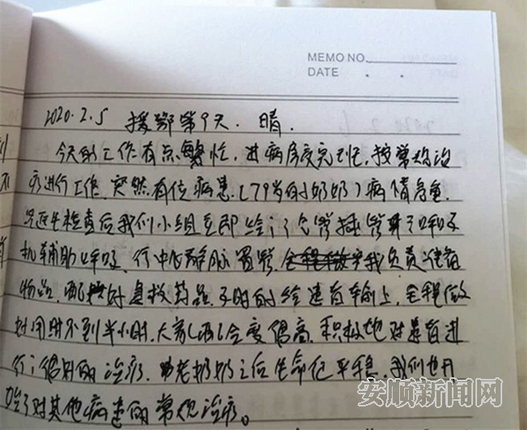 MEMO NO.
DATE . .
2020.2.5 援鄂第9天. 晴.
今天的工作有点繁忙, 进病房交完班, 按常规治
疗进行工作. 突然有位病患 (79岁的奶奶) 病情危重.
医生检查后我们小组立即给予气管插管呼吸
机辅助呼吸. 行中心静脉置管, 我负责准备
物品, 配好急救药品及时的给患者输上, 全程做
到用时不到半小时. 大家配合度很高. 积极地对患者进
行了很好的治疗. 老奶奶之后生命征平稳. 我们也开
始了对其他病患的常规治疗。
安顺新闻网